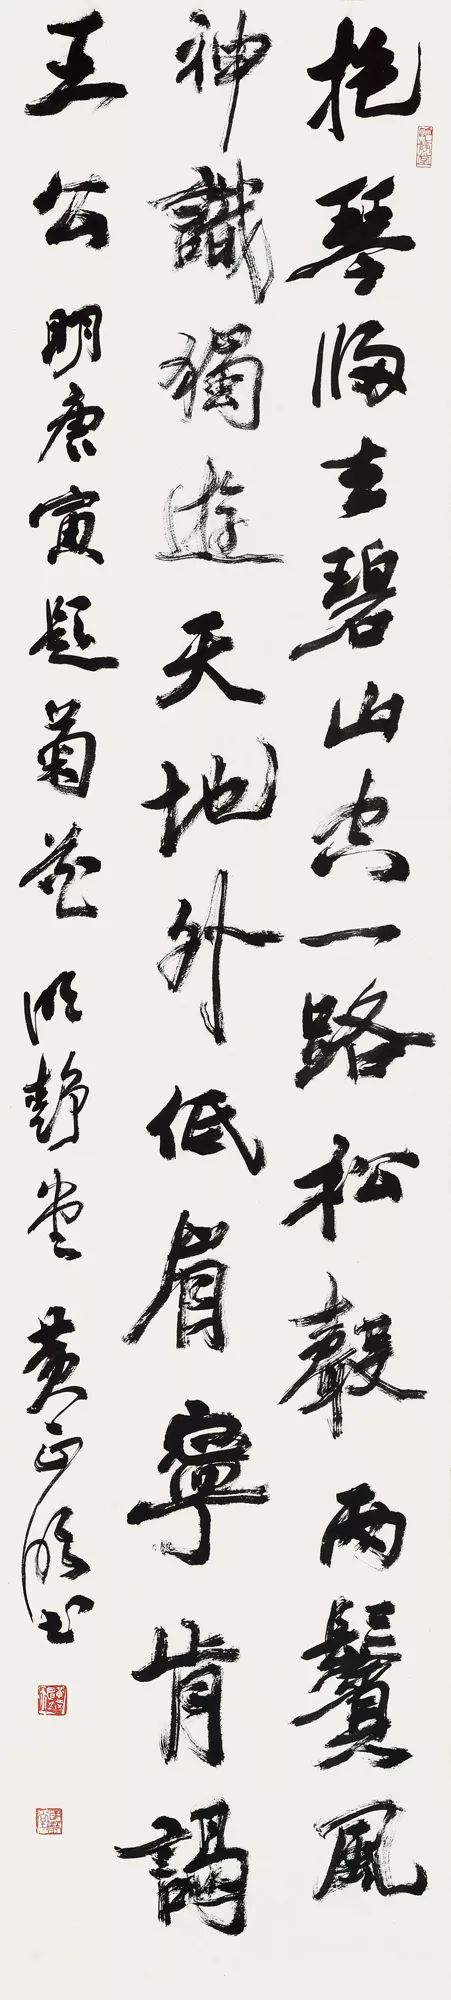 抱琴歸去碧山空一路松聲兩鬢風
神識獨遊天地外低眉寧肯謁
王公 明唐寅題菊花 明靜堂 黃正明書